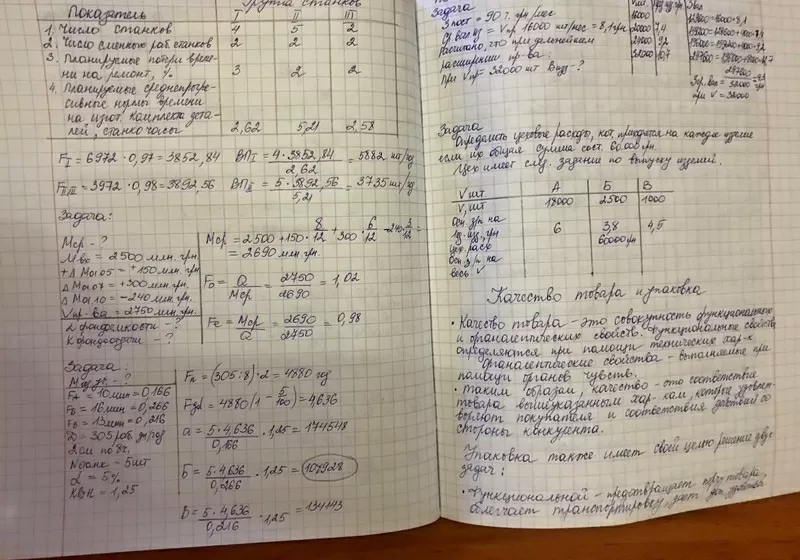 Показатель
Группа станков
I II III
1. Число станков 4 5 2
2. Число сменной раб. станков 2 2 2
3. Планируемые потери времени на ремонт, % 3 2 2
4. Планируемые среднепрогрес-
сивные нормы времени
на изгот. комплекта дета-
лей, станкочасы 2,62 5,21 2,58
F I = 6972 · 0,97 = 3852,84 ВП I = 4 · 3852,84 / 2,62 = 5882 шт/год
F II,III = 3972 · 0,98 = 3892,56 ВП II = 5 · 3892,56 / 5,21 = 3735 шт/год
Задача:
Мср - ?
М вх = 2500 млн. грн.
+ Δ М 01.05 = +150 млн. грн
Δ М 01.07 = +300 млн. грн.
Δ М 01.10 = -240 млн. грн.
V пр-ва = 2750 млн. грн.
К фондоотдачи - ?
Мср = 2500 + 150 · 8/12 + 300 · 6/12 - 240 · 3/12 =
= 2690 млн. грн.
Fо = Q / Мср = 2750 / 2690 = 1,02
Fе = Мср / Q = 2690 / 2750 = 0,98
Задача:
FА = 10 мин = 0,166
FБ = 16 мин = 0,266
FВ = 13 мин = 0,216
D = 305 раб. дн/год
2 см по 8 ч.
N станк = 5 шт
α = 5%
КВН = 1,25
Fн = (305 · 8) · 2 = 4880 год
Fэд = 4880 (1 - 5/100) = 4,636
а = 5 · 4,636 / 0,166 · 1,25 = 174548
Б = 5 · 4,636 / 0,266 · 1,25 = 107928
В = 5 · 4,636 / 0,216 · 1,25 = 134143
Задача
З пост = 90 т. грн/мес
V пр 16000 шт/мес = 8,1 грн
что при дальнейшем
расширении пр-ва:
при Vпр = 32000 шт Визд - ?
16000
20000 7,4
24000 9,2
32000 10,7
при V = 32000
Задача
Определить цеховые расходы, кот. приходятся на каждое изделие
если их общая сумма сост. 60.000 грн.
Цех имеет след. задание по выпуску изделий.
V шт. А Б В
V, шт 18000 2500 1000
осн. з/п на
ед. изд, грн 6 3,8 4,5
цех. расх 60000 грн
осн. з/п на
весь V
Качество товара и упаковка
• Качество товара - это совокупность функциональных
и органолептических свойств. Функциональные свойства
определяются при помощи технических хар-к
Органолептические свойства - выполняемые при
помощи органов чувств.
• Таким образом, качество - это соответствие
товара вышеуказанным хар-кам, которые удовлет-
воряют покупателя и соответствия действий со
стороны конкурента.
Упаковка также имеет своей целью решение двух
задач:
• Функциональной - предотвращает порчу товара,
облегчает транспортировку, дает